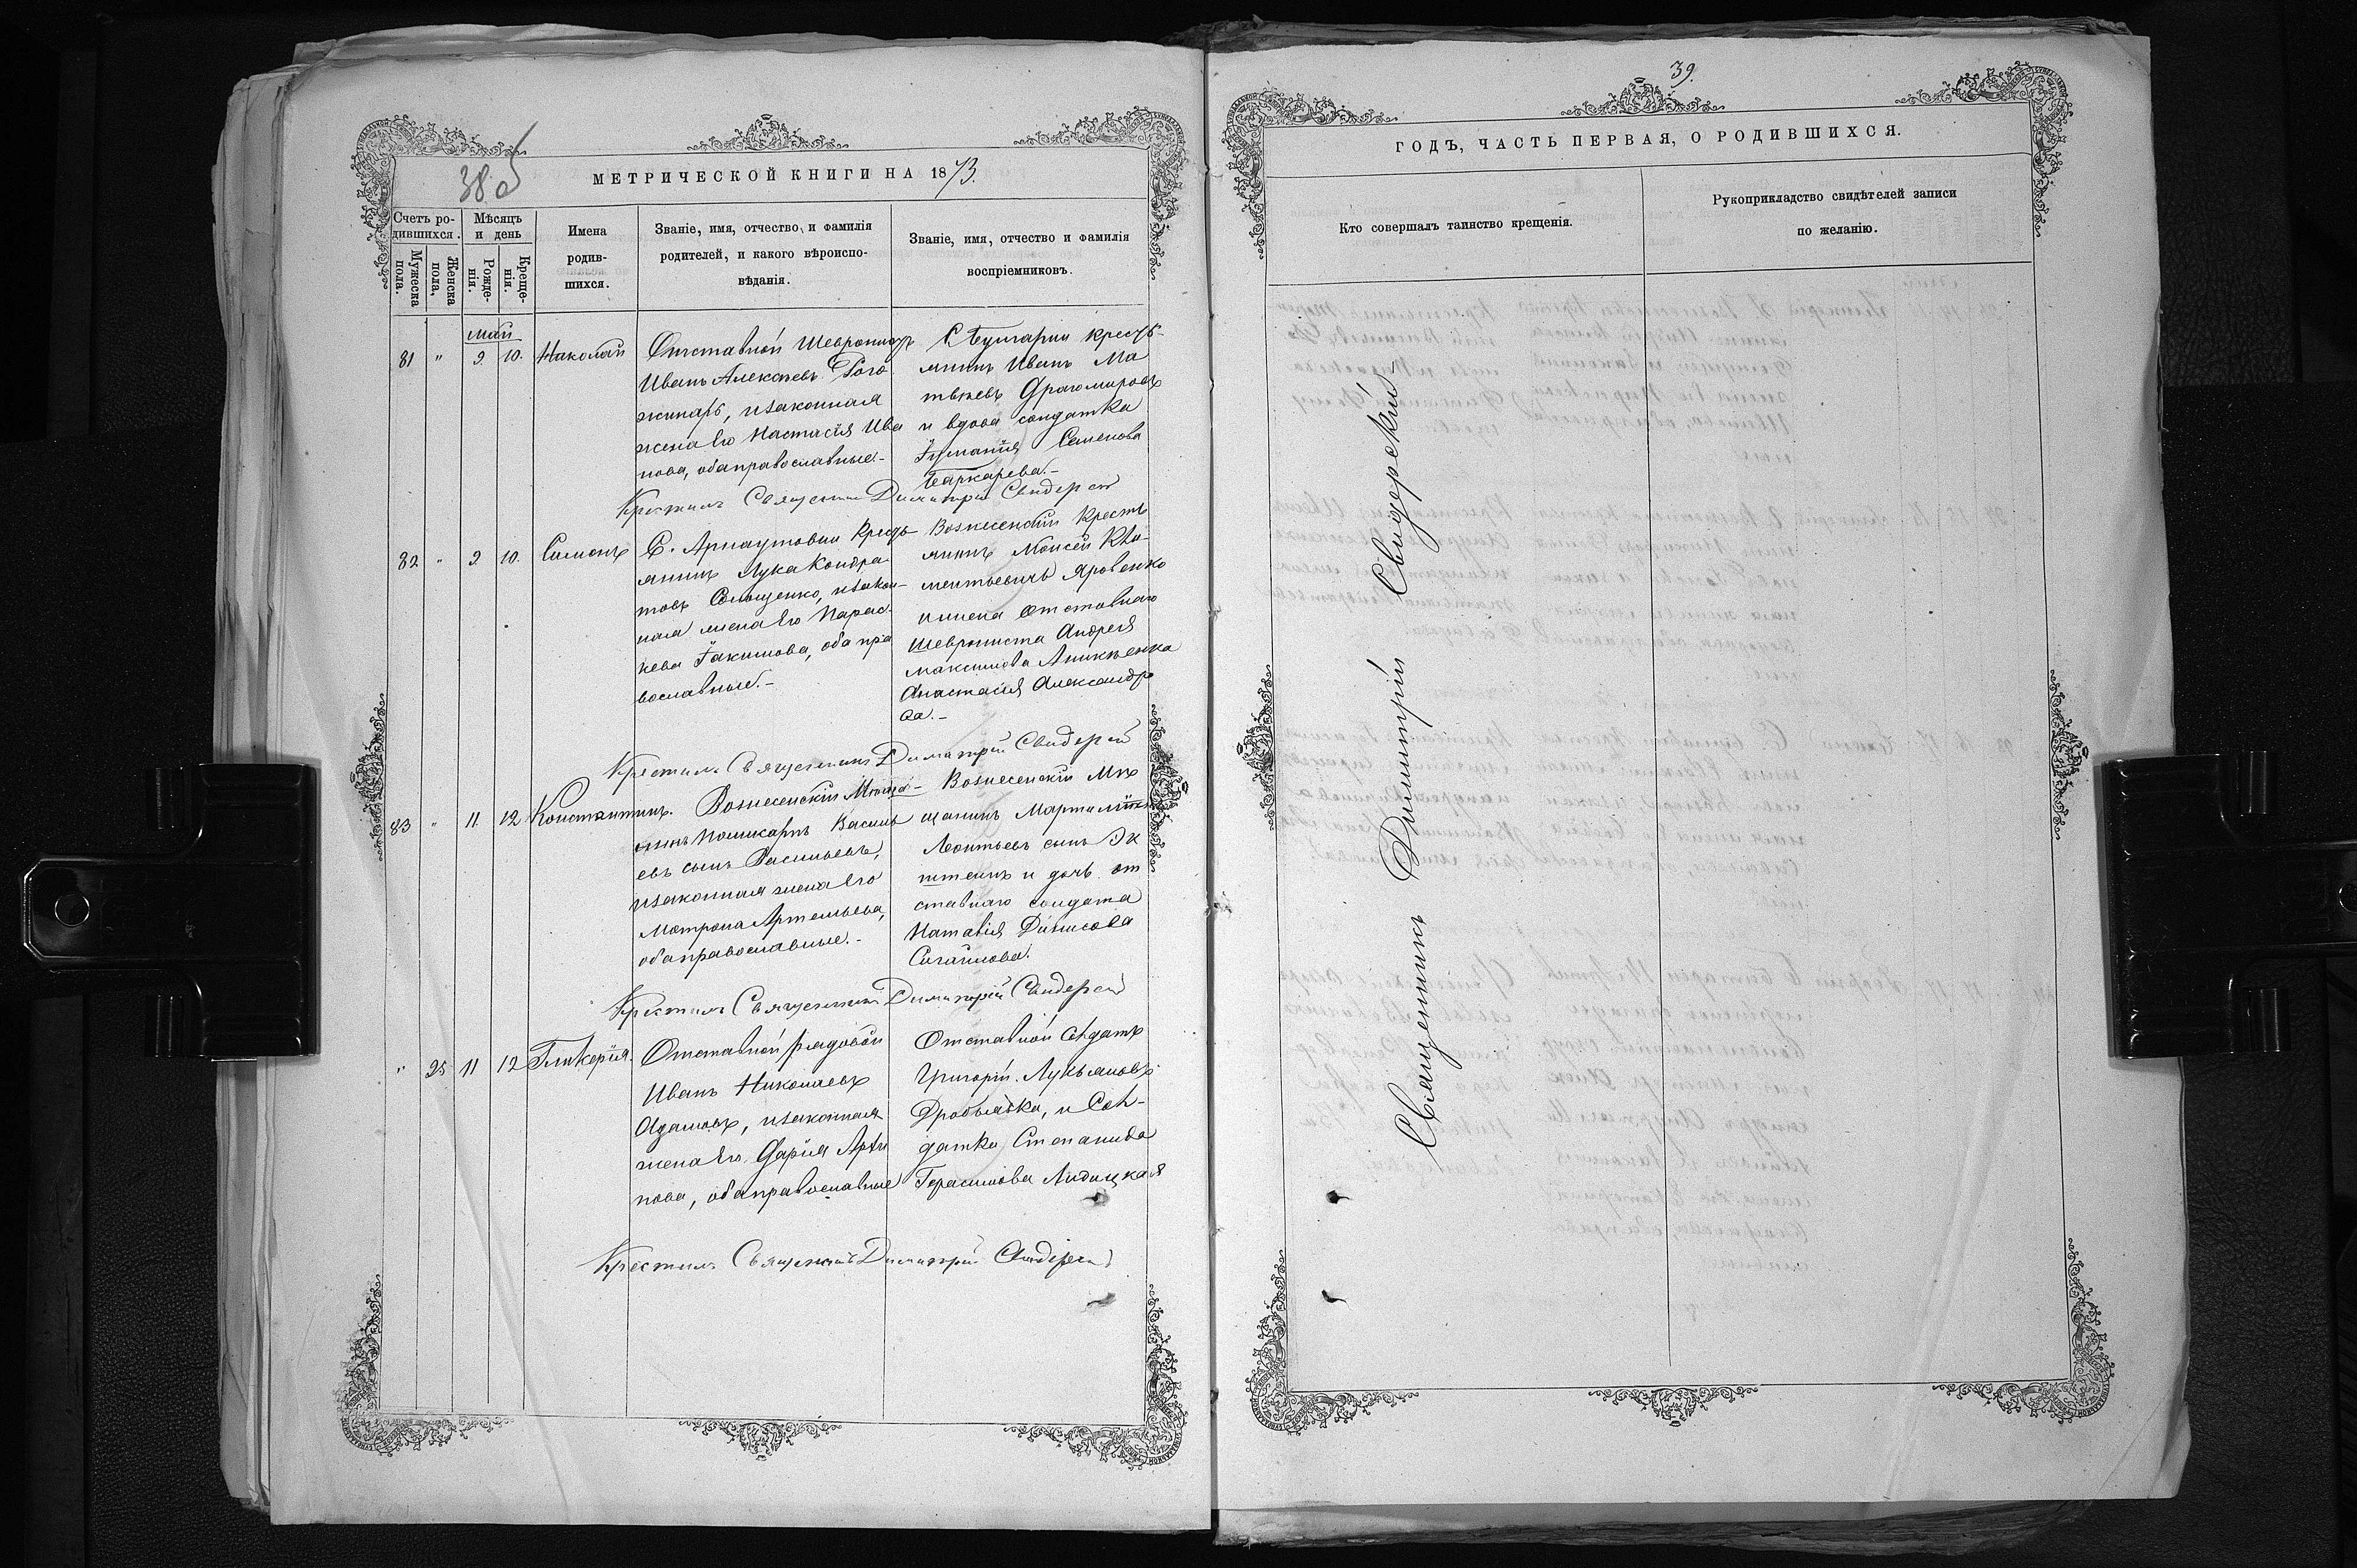 38 об
МЕТРИЧЕСКОЙ КНИГИ НА 1873.
Счетъ ро-
дившихся.
Мужеска
пола.
Женска
пола,
Мѣсяцъ
и день
Рожде-
нія.
Креще-
нія.
Имена
родив-
шихся.
Званіе, имя, отчество, и фамилія
родителей, и какого вѣроиспо-
вѣданія.
Званіе, имя, отчество и фамилія
воспріемниковъ.
май
81 " 9. 10. Николай
Отставной Шевронистъ
Иванъ Алексѣевъ Рого
жинаръ, изаконная
жена его Настасія Ива
нова, оба православные.-
С. Булгаріи кресть-
янинъ Иванъ Ма
твѣевъ Драгомировъ
и вдова солдатка
Семенова
Крестилъ Священникъ Димитрій Свидерскій
82 " 9. 10. Симонъ
С. Арнаутовки Кресть-
янинъ Лука Кондра-
товъ изакон-
ная жена его Парас-
кева Іакимова, оба пра
вославные.-
Вознесенскій Кресть
янинъ Моисей Кли-
ментьевичъ Яровенко
и жена отставнаго
Шеврониста Андрея
Максимова
Анастасія Александро
ва.-
Крестилъ Священникъ Димитрій Свидерскій
83 " 11. 12 Константинъ.
Вознесенскій Мѣща-
нинъ Поликарпъ Василь
евъ сынъ Васильевъ,
изаконная жена его
Матрона Артемьева,
оба православные.-
Вознесенскій Мѣ
щанинъ
Леонтьевъ сынъ Эк
штейнъ и дочь от
ставнаго солдата
Наталія Динисова
Крестилъ Священникъ Димитрій Свидерскій
" 25 11 12 Гликерія.
Отставной рядовой
Иванъ Николаевъ
Адамовъ, изаконная
жена его Дарія Архи
пова, оба православные
Отставной Солдатъ
Григорій Лукьяновъ
Дробязка, и Сол-
датка Степанида
Герасимова Лидицкая
Крестилъ Священникъ Димитрій Свидерскій
39.
ГОДЪ, ЧАСТЬ ПЕРВАЯ, О РОДИВШИХСЯ.
Кто совершалъ таинство крещенія.
Рукоприкладство свидѣтелей записи
по желанію.
Священникъ Димитрій Свидерскій